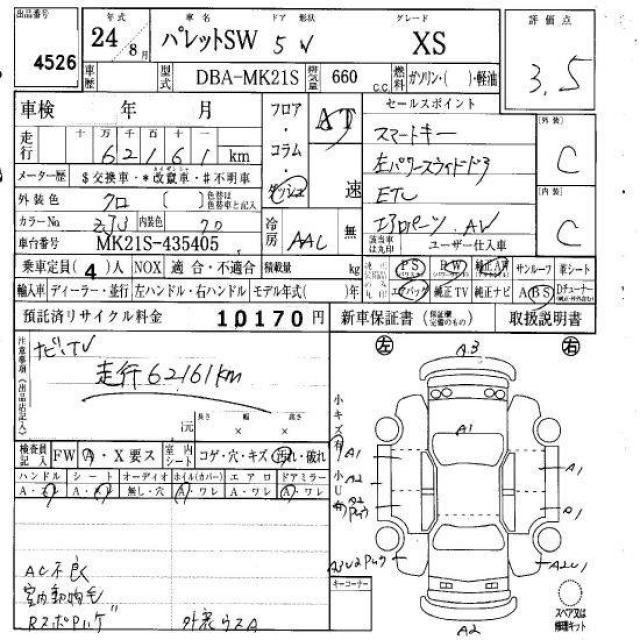 出品番号 4526
年式 24 年 8月
車名 パレットSW
ドア 形状 5 W
グレード XS
評価点 3.5
車歴
型式 DBA-MK21S
排気量 660 c.c.
燃料 ガソリン・( )・軽油
車検 年 月
フロア・コラム・
AT
速
セールスポイント
走行 十万千百十一
6 2 1 6 1 km
スマートキー
左パワースライドドア
ETC
エアロパーツ. AV
[外装] C
[内装] C
メーター歴 $交換車・*改竄車・#不明車
外装色 クロ ( ) 色替は色替車と記入
カラーNo ZJ3 内装色 クロ
冷房 AAC 無
該当車は丸印 ユーザー仕入車
車台番号 MK21S-435405
乗車定員(4)人 NOX 適合・不適合 積載量 kg
PS PW 純正AW サンルーフ 革シート
輸入車 ディーラー・並行 左ハンドル・右ハンドル モデル年式( )年
エアバッグ 純正TV 純正ナビ ABS Dチューナー
預託済リサイクル料金 10170円
新車保証書 (保証欄完備のもの) 取扱説明書
注意事項(出品店記入)
ナビ,TV
走行62161km
元
長さ 幅 高さ
× ×
検査員記入 FW A・X要ス 室内シート コゲ・穴・キズ・汚れ・破れ
ハンドル シート オーディオ ホイル(カバー) エアロ ドアミラー
A・スレ A・スレ 無し・穴 A・ワレ A・ワレ A・ワレ
AC不良
室内動物毛
RスポPハゲ
外装ウスA
左 右
小キズ有
小U有
A3
A1
A1
A2
A2
A1
A1
A2
キーコーナー
スペア又は修理キット